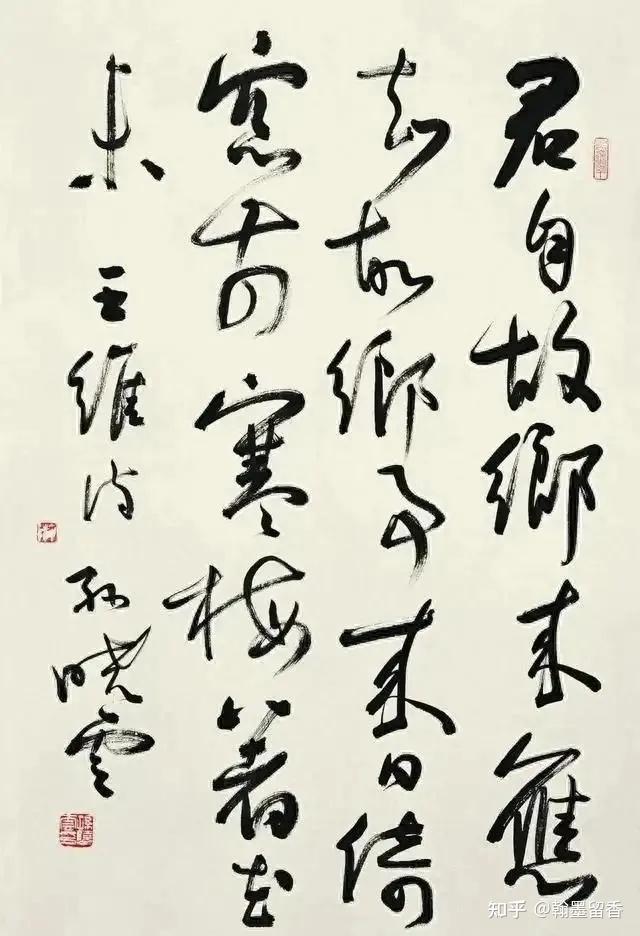 君自故鄉來應
知故鄉事來日綺
窓前寒梅著花
未 王維诗 孫曉雲
知乎 @翰墨留香